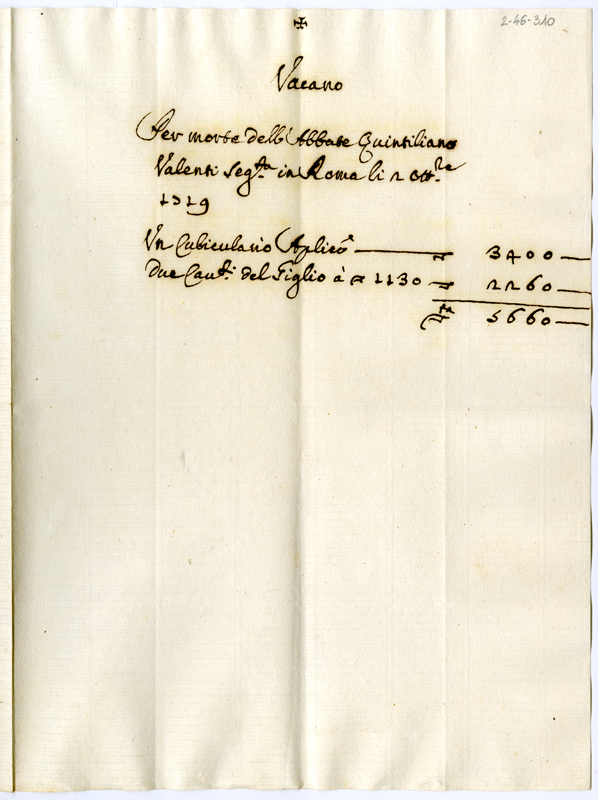 2-46-310
✠
Vacano
Per morte dell'Abbate Quintiliano
Valenti seg.ta in Roma li 2 8bre
1729
Un Cubiculario Aplico 3400
Due Cav.ti del Giglio à 1130 2260
5660